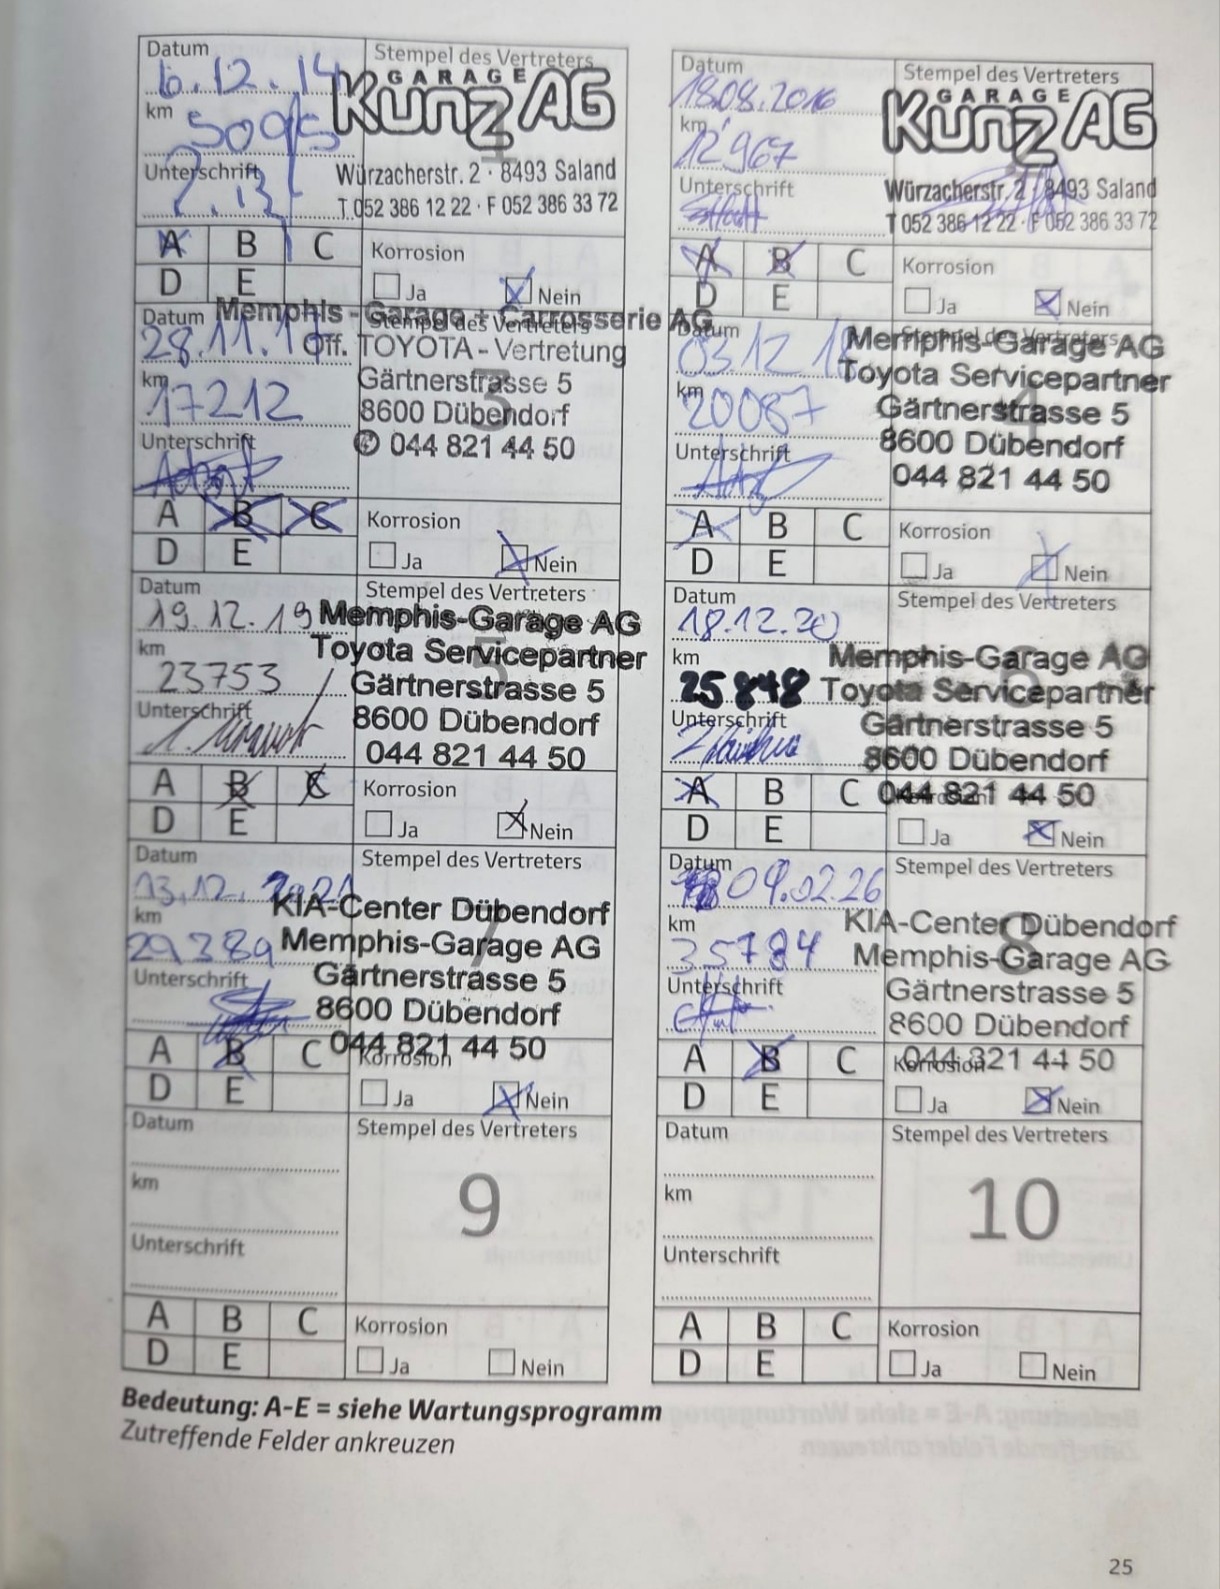 Datum
6.12.14
km
5095
Unterschrift
Stempel des Vertreters
GARAGE
Kunz AG
1
Würzacherstr. 2 · 8493 Saland
T 052 386 12 22 · F 052 386 33 72
A B C
D E
Korrosion
Ja Nein
Datum
18.08.2016
km
12'967
Unterschrift
Stempel des Vertreters
GARAGE
Kunz AG
Würzacherstr. 2 · 8493 Saland
T 052 386 12 22 · F 052 386 33 72
A B C
D E
Korrosion
Ja Nein
Datum
28.11.1
km
17212
Unterschrift
Stempel des Vertreters
Memphis-Garage + Carrosserie AG
Off. TOYOTA-Vertretung
3
Gärtnerstrasse 5
8600 Dübendorf
044 821 44 50
A B C
D E
Korrosion
Ja Nein
Datum
03.12.1
km
20087
Unterschrift
Stempel des Vertreters
Memphis-Garage AG
Toyota Servicepartner
4
Gärtnerstrasse 5
8600 Dübendorf
044 821 44 50
A B C
D E
Korrosion
Ja Nein
Datum
19.12.19
km
23753
Unterschrift
Stempel des Vertreters
Memphis-Garage AG
Toyota Servicepartner
5
Gärtnerstrasse 5
8600 Dübendorf
044 821 44 50
A B C
D E
Korrosion
Ja Nein
Datum
18.12.20
km
25848
Unterschrift
Stempel des Vertreters
Memphis-Garage AG
Toyota Servicepartner
6
Gärtnerstrasse 5
8600 Dübendorf
044 821 44 50
A B C
D E
Korrosion
Ja Nein
Datum
13.12.2021
km
29389
Unterschrift
Stempel des Vertreters
KIA-Center Dübendorf
Memphis-Garage AG
7
Gärtnerstrasse 5
8600 Dübendorf
044 821 44 50
A B C
D E
Korrosion
Ja Nein
Datum
09.02.26
km
35784
Unterschrift
Stempel des Vertreters
KIA-Center Dübendorf
Memphis-Garage AG
8
Gärtnerstrasse 5
8600 Dübendorf
044 821 44 50
A B C
D E
Korrosion
Ja Nein
Datum
km
Unterschrift
Stempel des Vertreters
9
A B C
D E
Korrosion
Ja Nein
Datum
km
Unterschrift
Stempel des Vertreters
10
A B C
D E
Korrosion
Ja Nein
Bedeutung: A-E = siehe Wartungsprogramm
Zutreffende Felder ankreuzen
25